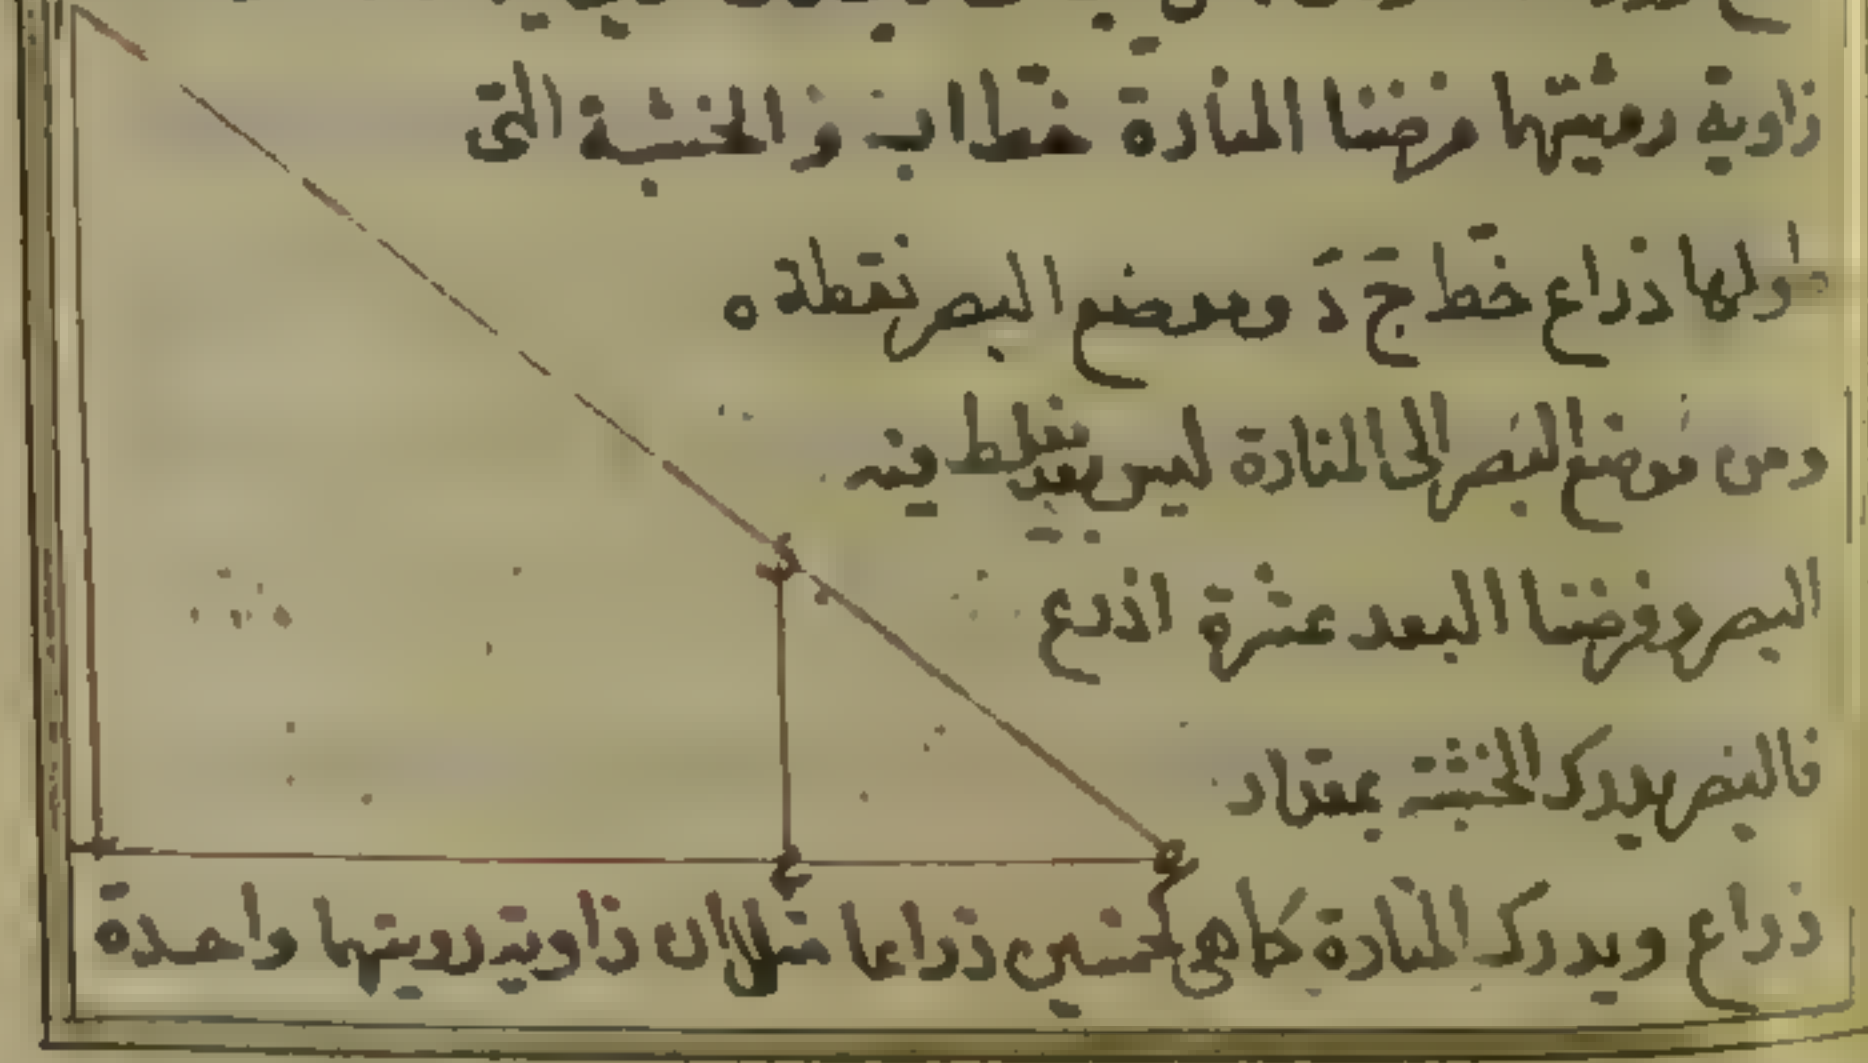 زاوية رؤيتها فرضنا المنارة خط اب والخشبة التى
طولها ذراع خط ج د وموضع البصر نقطة ه
ومن موضع البصر الى المنارة ليس يغلط فيه
البصر وفرضنا البعد عشرة اذرع
فالبصر يدرك الخشبة بمقدار
ذراع ويدرك المنارة كما هى خمسين ذراعا مثلا لان زاوية رويتها واحدة